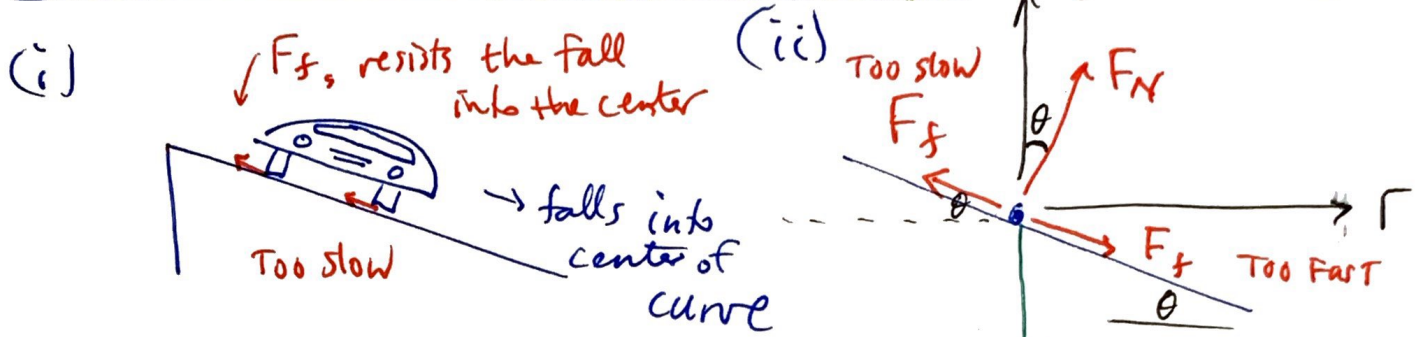 (i)
Ff, resists the fall
into the center
→ falls into
center of
curve
Too slow
(ii)
Too slow
Ff
θ
FN
θ
r
Ff
Too Fast
θ